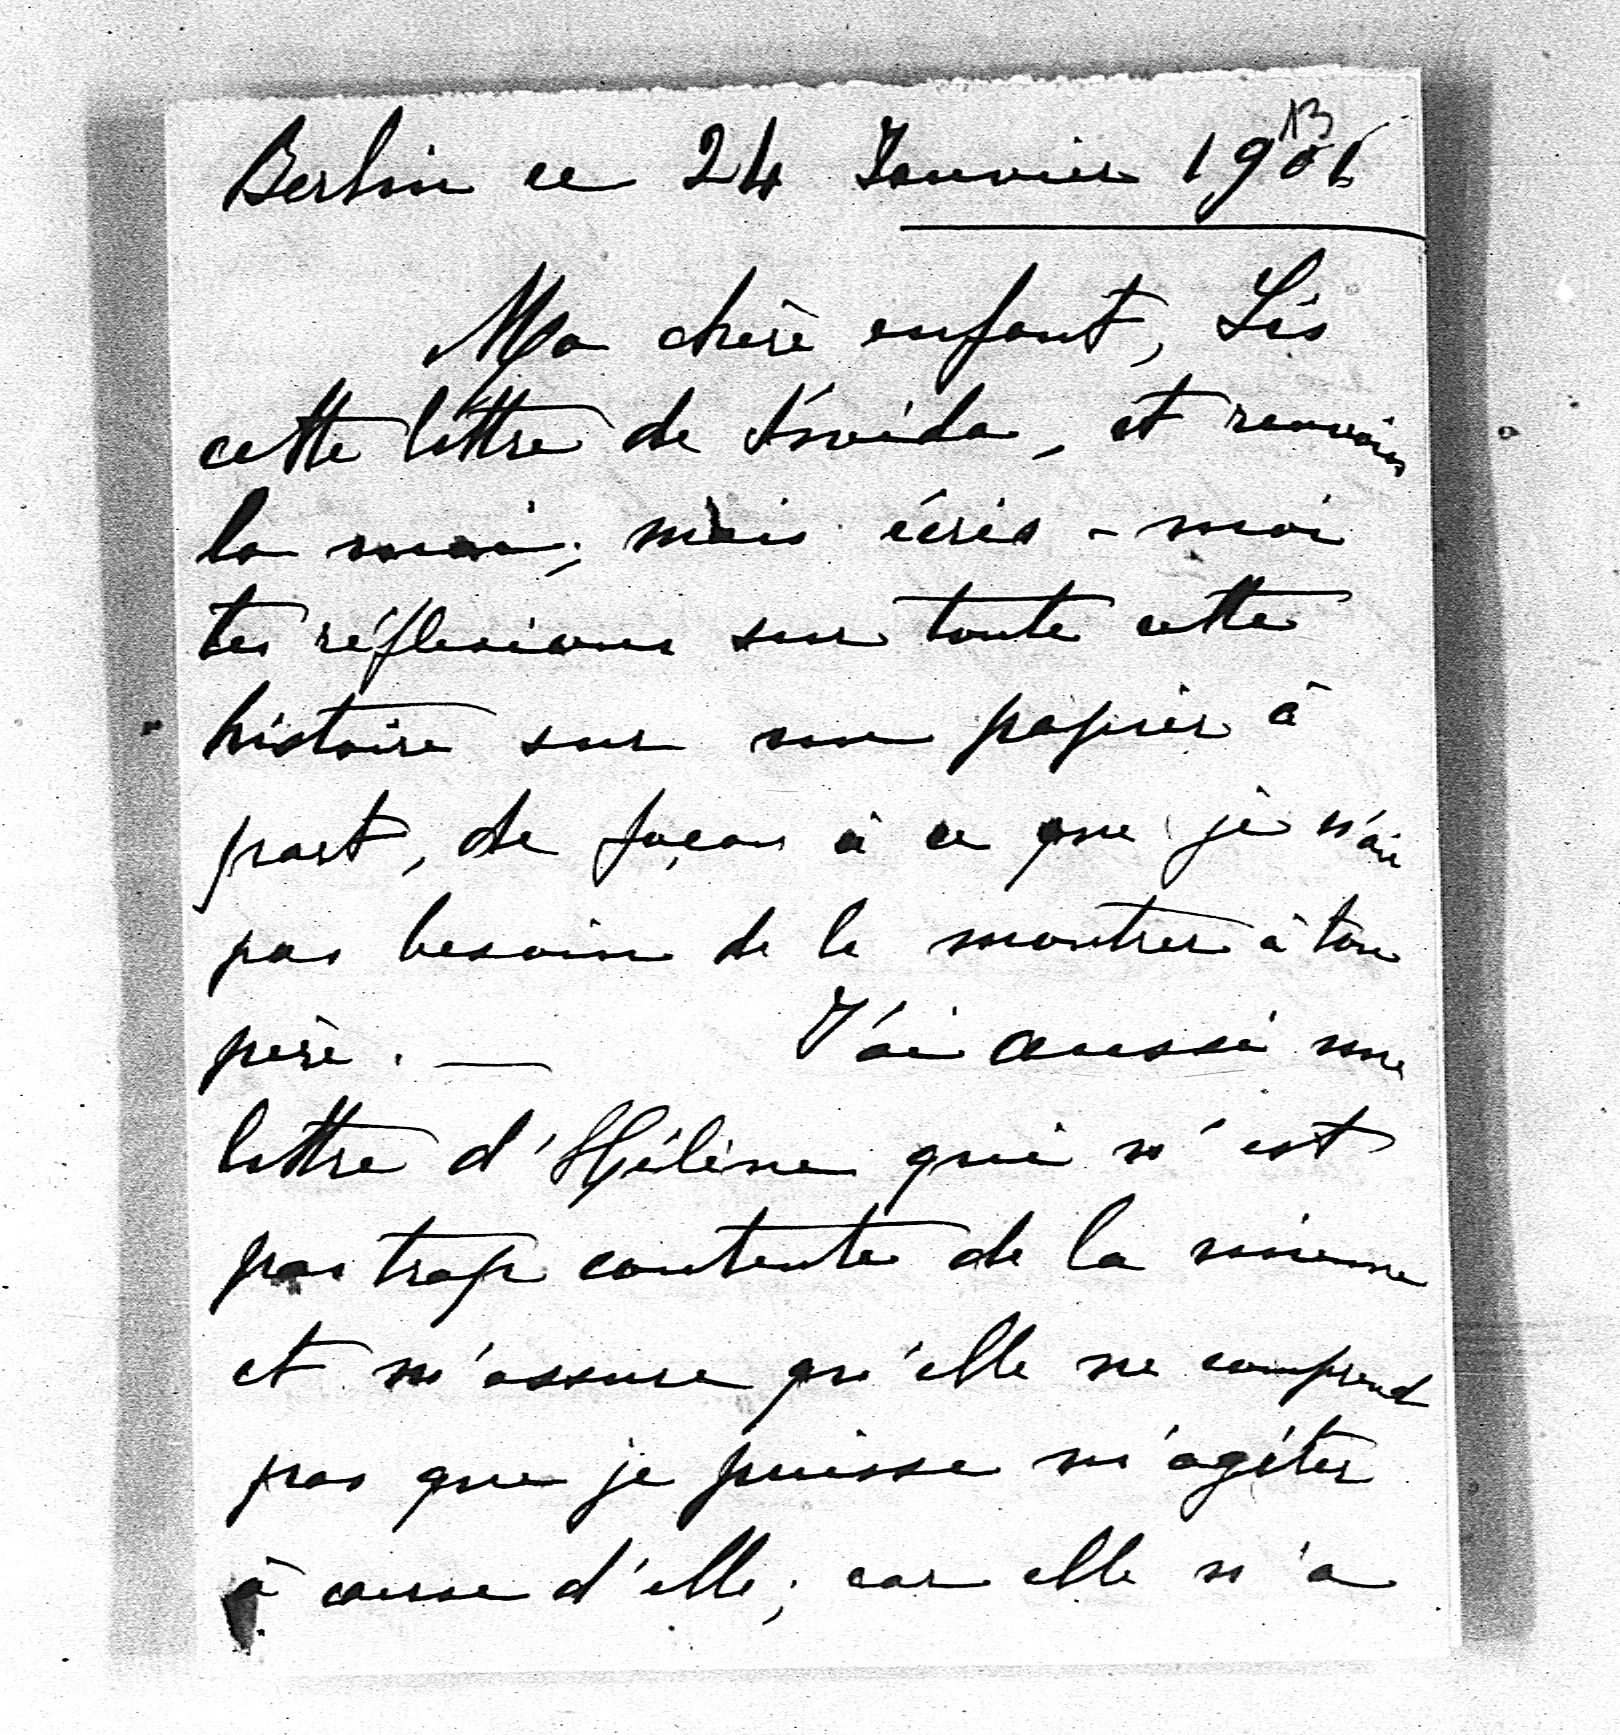 13
Berlin ce 24 Janvier 1906
Ma chère enfant, Lis
cette lettre de et renvoies
la moi; mais écris-moi
tes réflexions sur toute cette
histoire sur un papier à
part, de façon à ce que je n'aie
pas besoin de le montrer à ton
père. — J'ai aussi une
lettre d'Hélène qui n'est
pas trop contente de la mienne
et m'assure qu'elle ne comprend
pas que je puisse m'agiter
à cause d'elle; car elle n'a